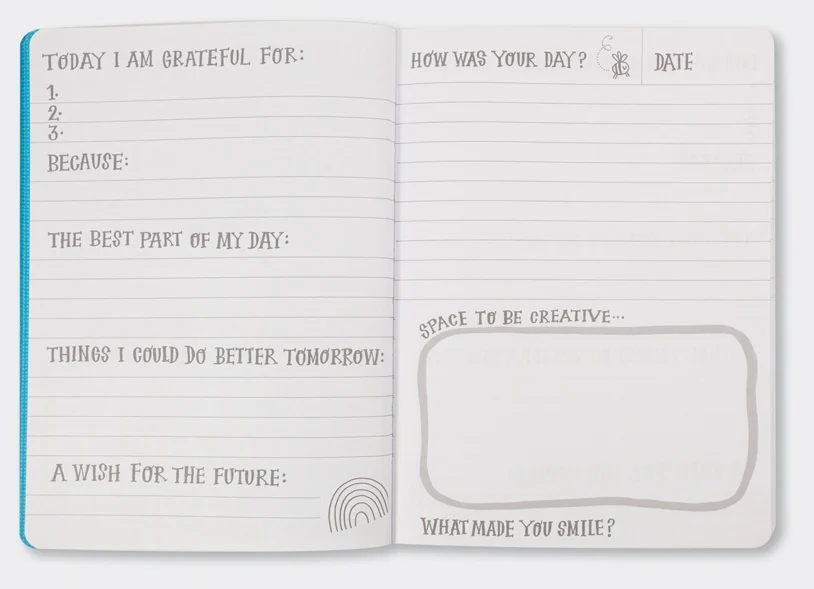 TODAY I AM GRATEFUL FOR:
1.
2.
3.
BECAUSE:
THE BEST PART OF MY DAY:
THINGS I COULD DO BETTER TOMORROW:
A WISH FOR THE FUTURE:
HOW WAS YOUR DAY?
DATE
SPACE TO BE CREATIVE...
WHAT MADE YOU SMILE?